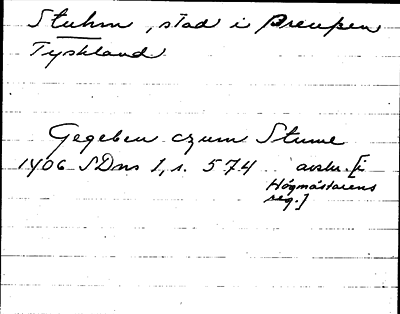 Stuhm, stad i Preuszen
Tyskland
Gegeben czum Stume
1406 SDns 1, s. 574 avskr. [i
Högmästarens
reg.]